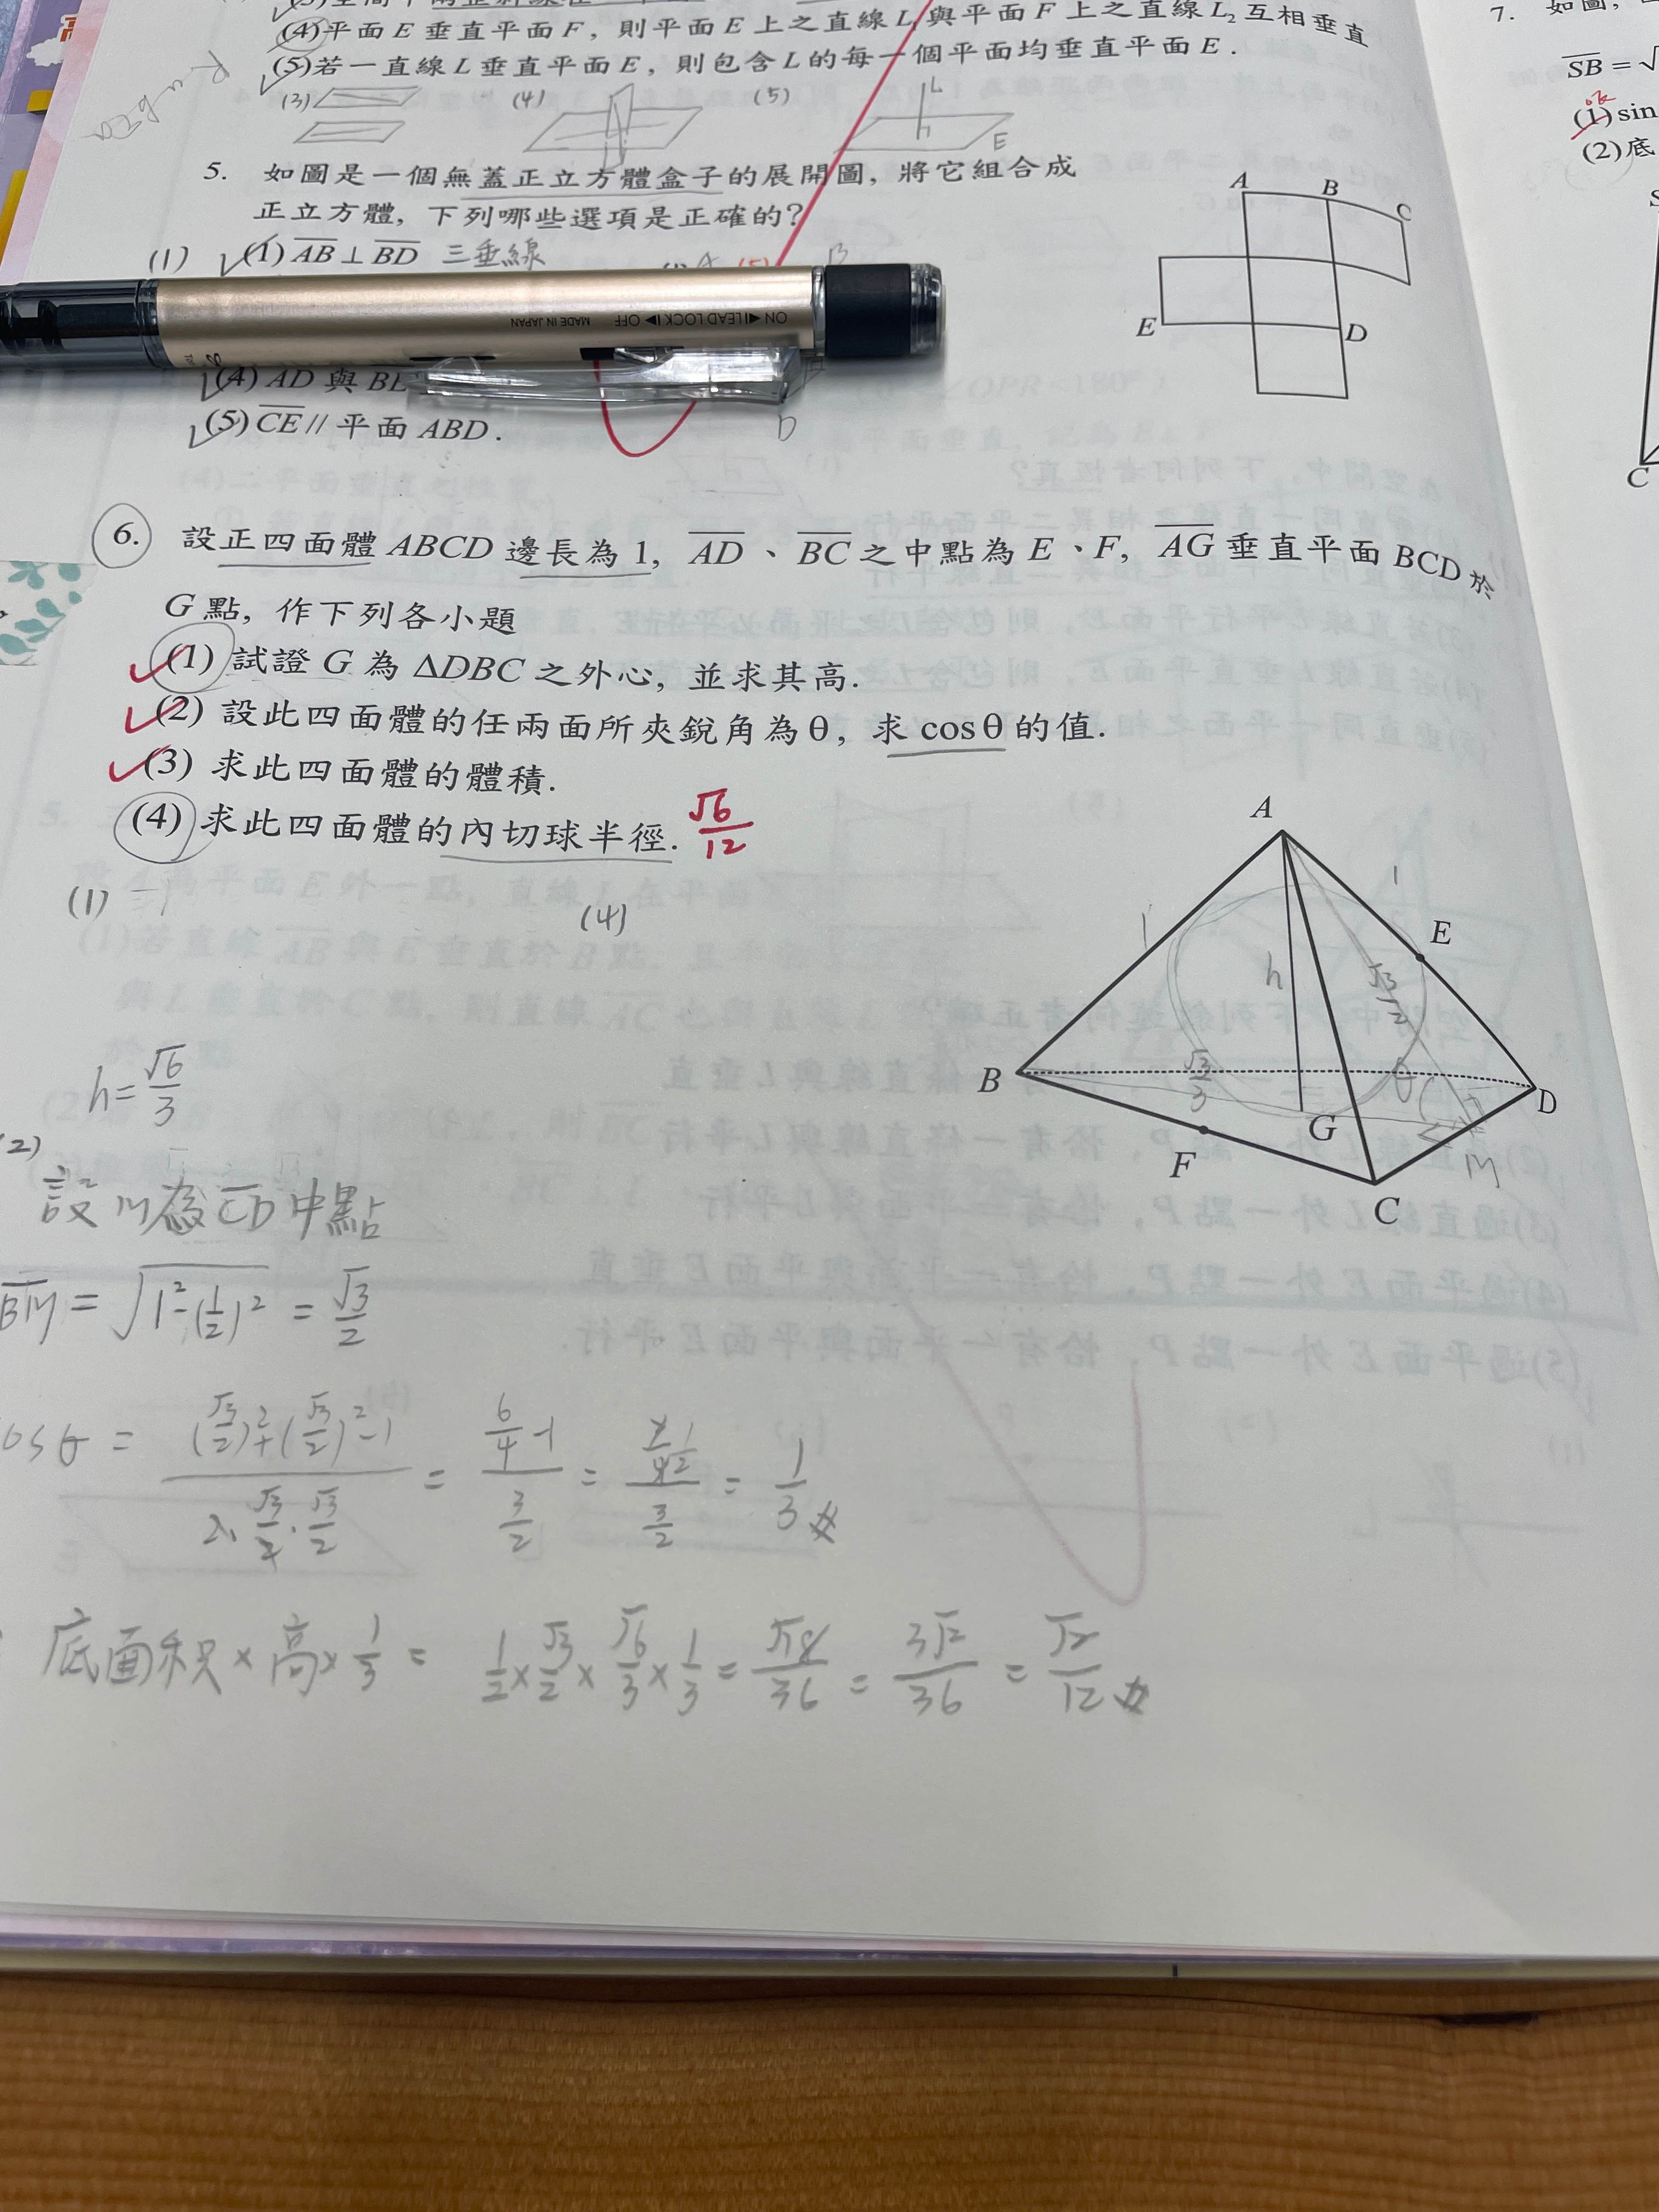 (4)平面E垂直平面F,則平面E上之直線L₁與平面F上之直線L₂互相垂直
(5)若一直線L垂直平面E,則包含L的每一個平面均垂直平面E.
(3)
(4)
(5)
L
E
5. 如圖是一個無蓋正立方體盒子的展開圖,將它組合成
正立方體,下列哪些選項是正確的?
(1) (1) AB⊥BD 三垂線
(4) AD 與
(5) CE // 平面 ABD.
D
A
B
C
E
D
ON ◀ LEAD LOCK ▶ OFF MADE IN JAPAN
6. 設正四面體ABCD邊長為1, AD、BC之中點為E、F, AG垂直平面BCD於
G點,作下列各小題
(1) 試證G為ΔDBC之外心,並求其高.
(2) 設此四面體的任兩面所夾銳角為θ,求cosθ的值.
(3) 求此四面體的體積.
(4) 求此四面體的內切球半徑. √6/12
(1)
(4)
A
1
1
E
h
√3/2
B
√3/3
θ
D
G
F
M
C
h=√6/3
(2)
設M為CD中點
BM = √(1²-(1/2)²) = √3/2
cosθ = ((√3/2)²+(√3/2)²-1)/(2·√3/2·√3/2) = (6/4-1)/(3/2) = (1/2)/(3/2) = 1/3
底面积×高×1/3 = 1/2×√3/2×√6/3×1/3 = √18/36 = 3√2/36 = √2/12
7. 如圖,
SB = √
(1) sin
(2)底
S
C